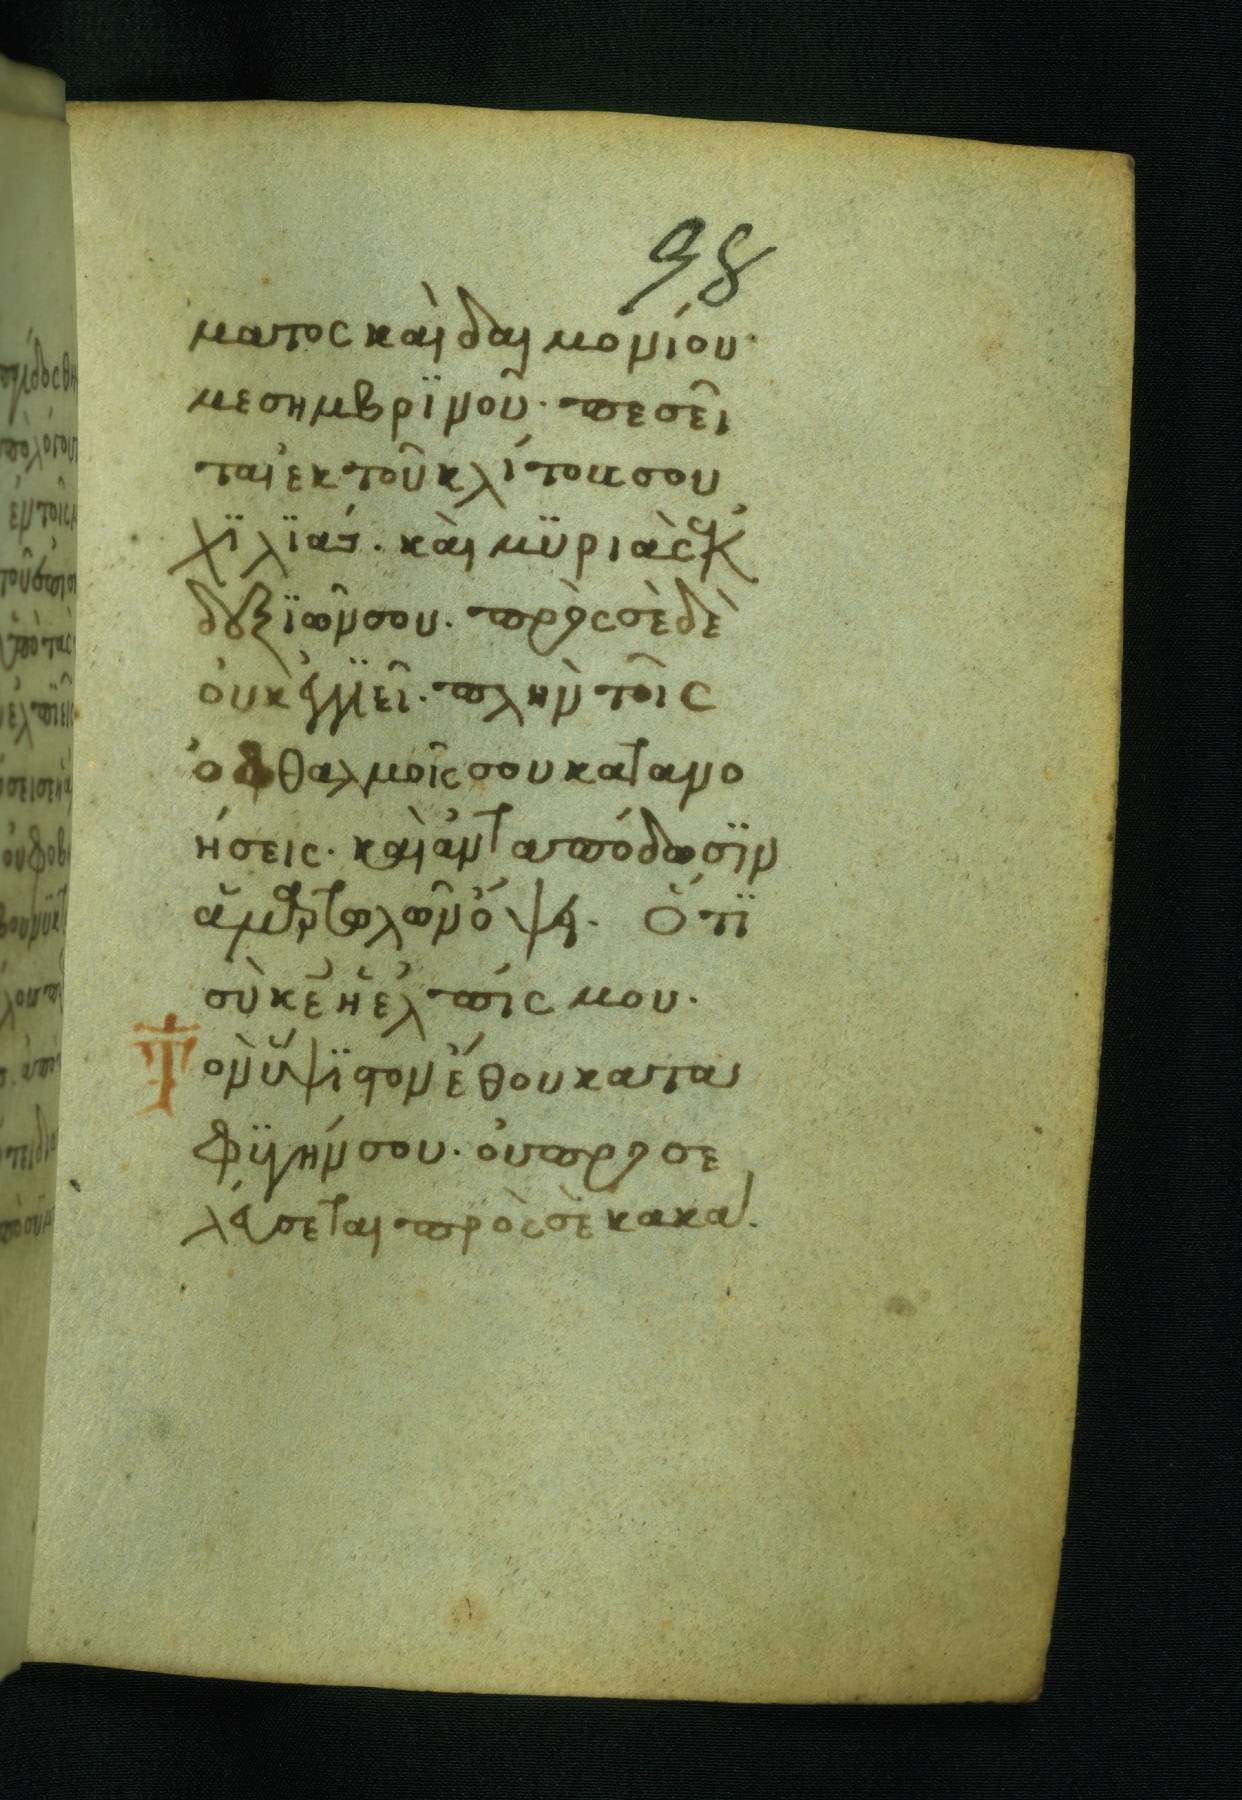 98
ματος καὶ δαιμονίου·
μεσημβρϊνοῦ· πεσεῖ
ται ἐκ τοῦ κλίτους σου
χϊλϊάς· καὶ μϋριὰς ἐκ
δεξϊῶν σου· πρὸς σὲ δὲ
οὐκ ἐγγϊεῖ· πλὴν τοῖς
ὀφθαλμοῖς σου κατανο
ήσεις· καὶ ἀνταπόδοσϊν
ἁμαρτωλῶν ὄψη· Ὅτϊ
σὺ κε ἡ ἐλπίς μου·
Τὸν ὕψϊστον ἔθου κατα
φϋγήν σου· οὐ προσε
λεύσεται πρὸς σὲ κακά·